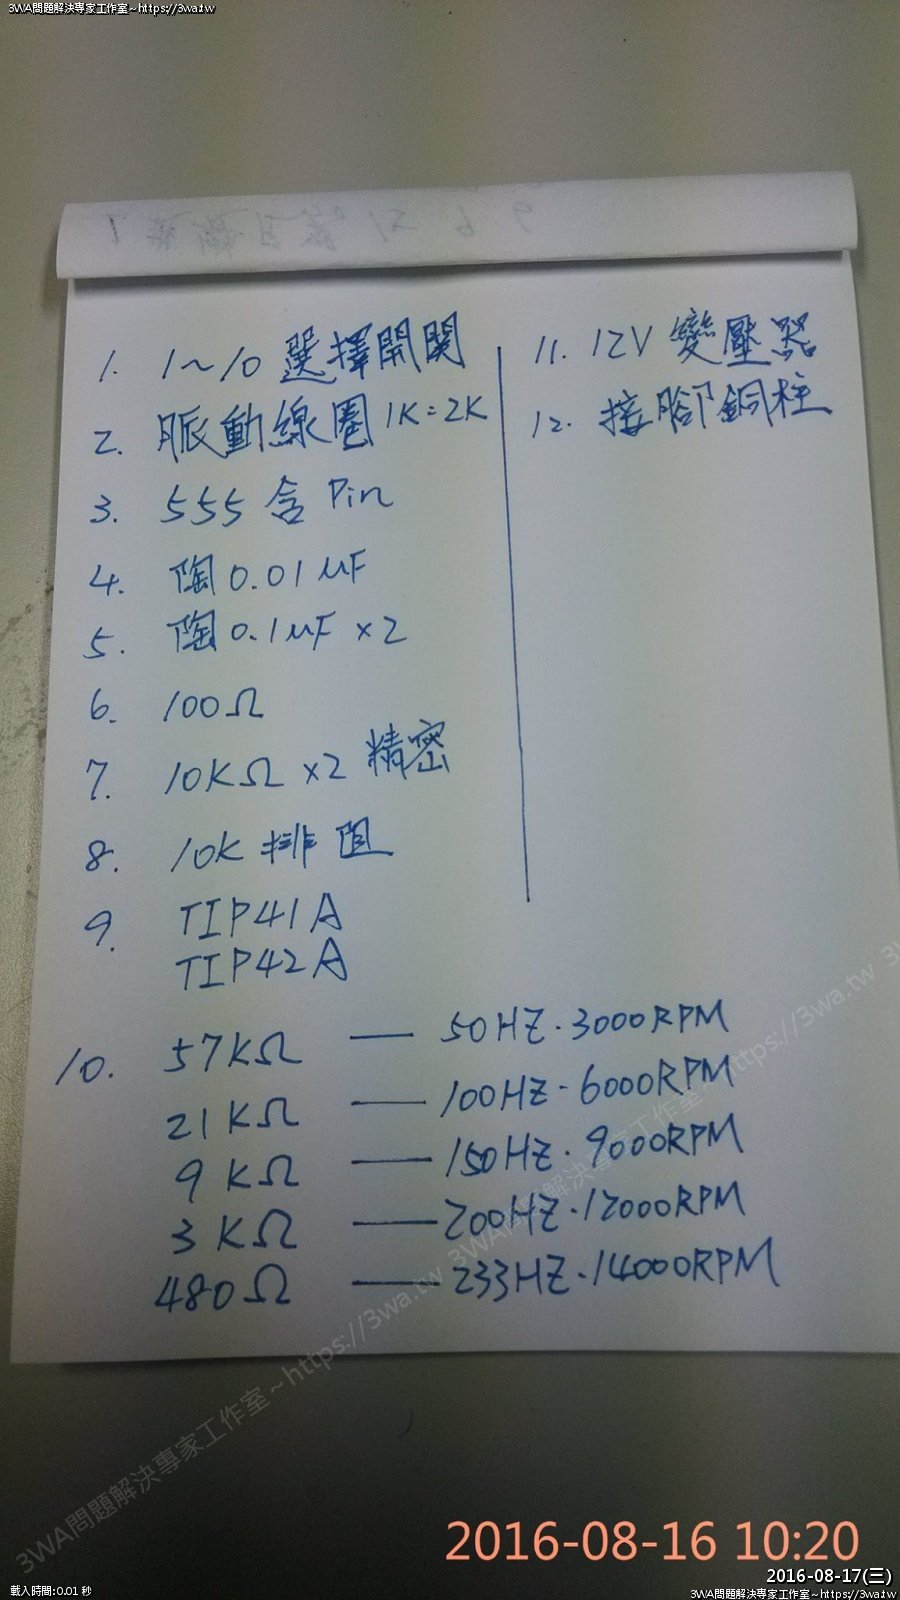 3WA問題解決專家工作室~https://3wa.tw
1. 1~10 選擇開關
2. 脈動線圈 1K=2K
3. 555 含 Pin
4. 陶 0.01 μF
5. 陶 0.1 μF ×2
6. 100Ω
7. 10KΩ ×2 精密
8. 10K 排阻
9. TIP41A
TIP42A
10. 57KΩ — 50HZ·3000RPM
21KΩ — 100HZ·6000RPM
9KΩ — 150HZ·9000RPM
3KΩ — 200HZ·12000RPM
480Ω — 233HZ·14000RPM
11. 12V 變壓器
12. 接腳銅柱
3WA問題解決專家工作室~https://3wa.tw 3WA問題解決專家工作室~https://3wa.tw 3
2016-08-16 10:20
2016-08-17(三)
載入時間:0.01 秒
3WA問題解決專家工作室~https://3wa.tw